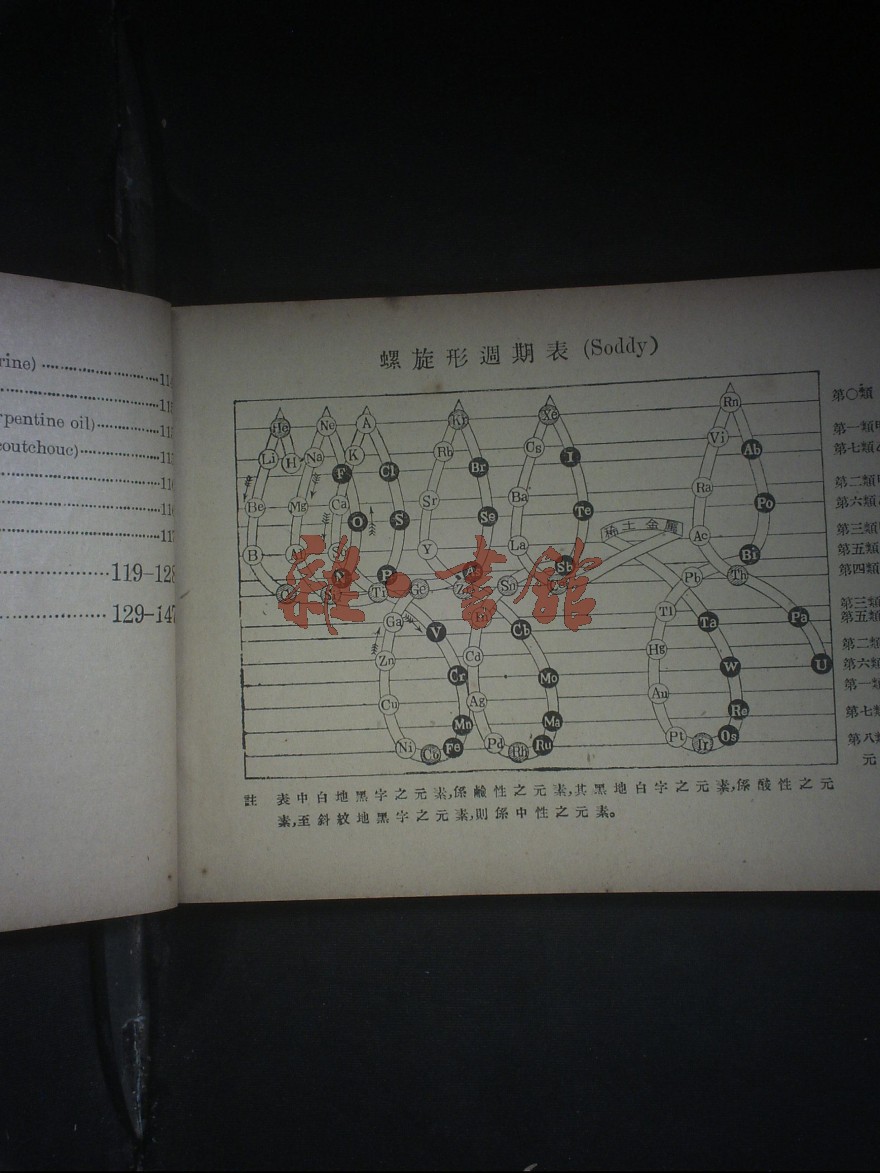 rine)
rpentine oil)
coutchouc)
119–128
129–147
螺旋形週期表 (Soddy)
He Ne A Kr Xe Rn
Li H Na K Rb Cs Vi
F Cl Br I Ab
Be Mg Ca Sr Ba Ra
O S Se Te Po
B Y La Ac
稀土金屬
N P As Sb Bi
Ti Ge Sn Pb Th
Ga In Tl
V Cb Ta Pa
Zn Cd Hg
Cr Mo W U
Cu Ag Au
Mn Ma Re
Ni Co Fe Pd Rh Ru Pt Ir Os
第〇類
第七類
第六類
第五類
第四類
第三類
第五類
第二類
第六類
第一類
第七類
第八類
元
註 表中白地黑字之元素,係鹼性之元素,其黑地白字之元素,係酸性之元
素,至斜紋地黑字之元素,則係中性之元素。
雜·書館